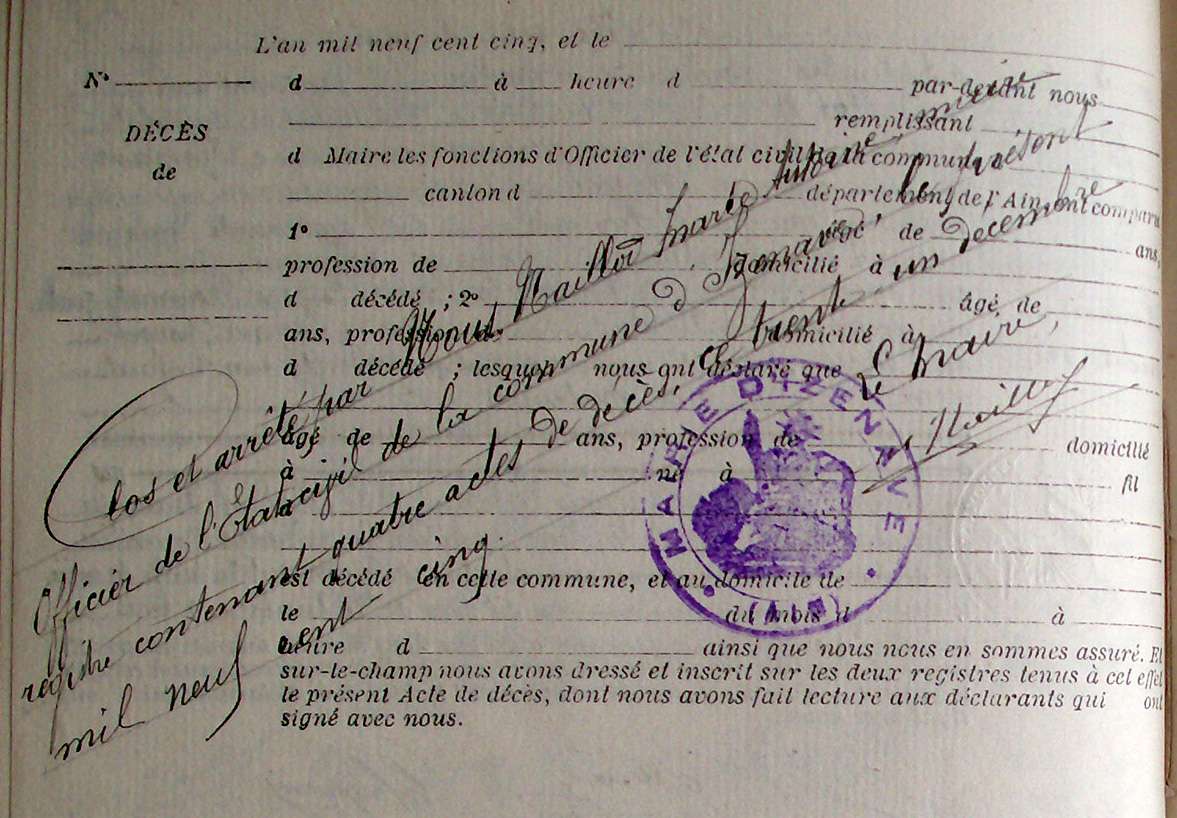 L'an mil neuf cent cinq, et le
N° d à heure d par-devant nous
DÉCÈS
de
remplissant
d Maire les fonctions d'Officier de l'état civil de la commune d
canton d département de l'Ain ont comparu
1° âgé de ans,
profession de domicilié à
d décédé ; 2° âgé de
ans, profession de domicilié à
d décédé ; lesquels nous ont déclaré que
âgé de ans, profession de domicilié
à né à fil
est décédé en cette commune, et au domicile de
le du mois d à
heure d ainsi que nous nous en sommes assuré. Et
sur-le-champ nous avons dressé et inscrit sur les deux registres tenus à cet effet
le présent Acte de décès, dont nous avons fait lecture aux déclarants qui ont
signé avec nous.
Clos et arrêté par Nous Maillot Marie maire
Officier de l'Etat civil de la commune d'Izenave le présent
registre contenant quatre actes de décès, ce trente un decembre
mil neuf cent cinq.
Le Maire,
Maillot
MAIRIE D'IZENAVE
(AIN)